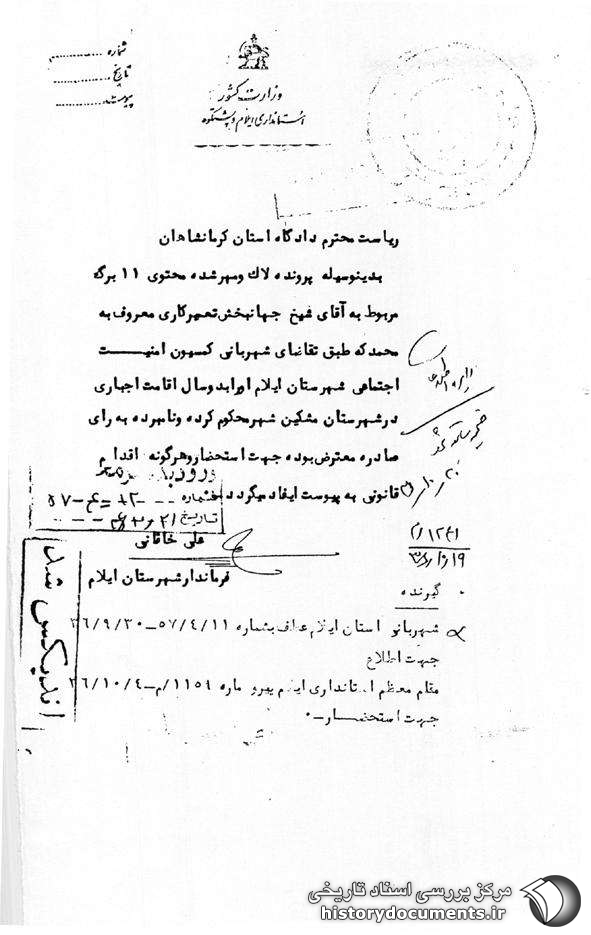 شماره
تاریخ
پیوست
وزارت کشور
استانداری ایلام و پشتکوه
ریاست محترم دادگاه استان کرمانشاهان
بدینوسیله پرونده لاك ومهرشده محتوی ۱۱ برگ
مربوط به آقای شیخ جهانبخش تعمیرکاری معروف به
محمد که طبق تقاضای شهربانی کمسیون امنیت
اجتماعی شهرستان ایلام اورابدوسال اقامت اجباری
درشهرستان مشکین شهر محکوم کرده ونامبرده به رای
صادره معترض بوده جهت استحضار وهرگونه اقدام
قانونی به پیوست ایفاد میگردد
شماره
تاریخ
علی خاقانی
فرماندار شهرستان ایلام
گیرنده
شهربانی استان ایلام عطف بشماره ۵۷/۴/۱۱-۳۶/۹/۳۰
جهت اطلاع
مقام معظم استانداری ایلام پیرو ماره ۱۱۵۹/م-۳۶/۱۰/۴
جهت استحضار-۰
اندیکس شد
مرکز بررسی اسناد تاریخی
historydocuments.ir